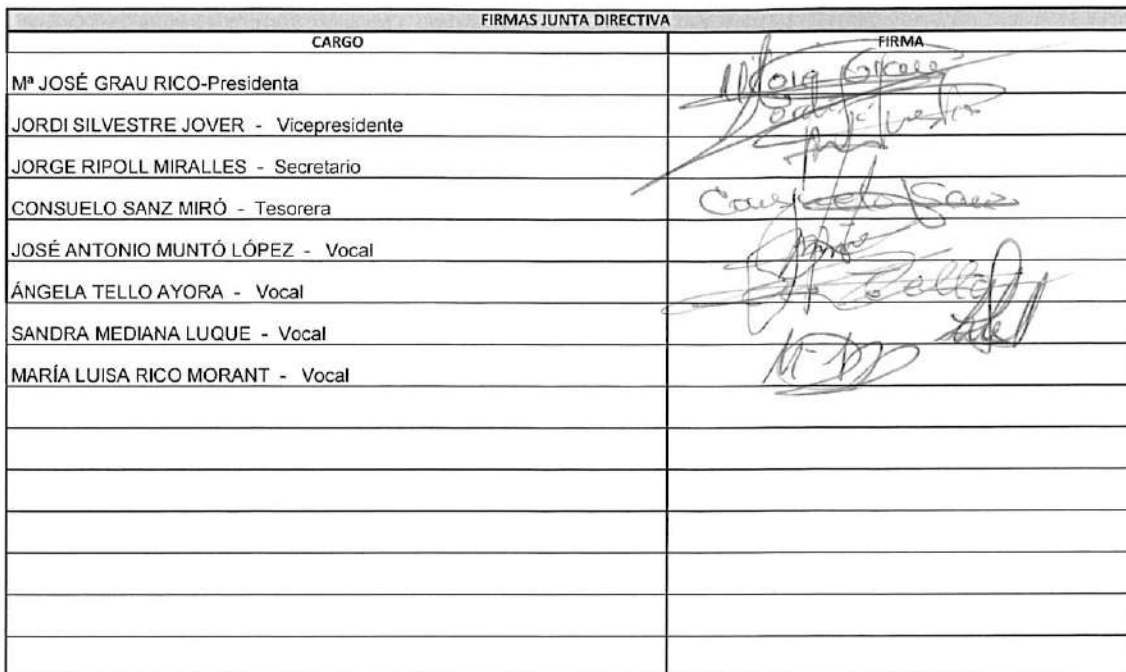 FIRMAS JUNTA DIRECTIVA
CARGO FIRMA
Mª JOSÉ GRAU RICO-Presidenta
JORDI SILVESTRE JOVER - Vicepresidente
JORGE RIPOLL MIRALLES - Secretario
CONSUELO SANZ MIRÓ - Tesorera Consuelo Sanz
JOSÉ ANTONIO MUNTÓ LÓPEZ - Vocal
ÁNGELA TELLO AYORA - Vocal Tello
SANDRA MEDIANA LUQUE - Vocal
MARÍA LUISA RICO MORANT - Vocal